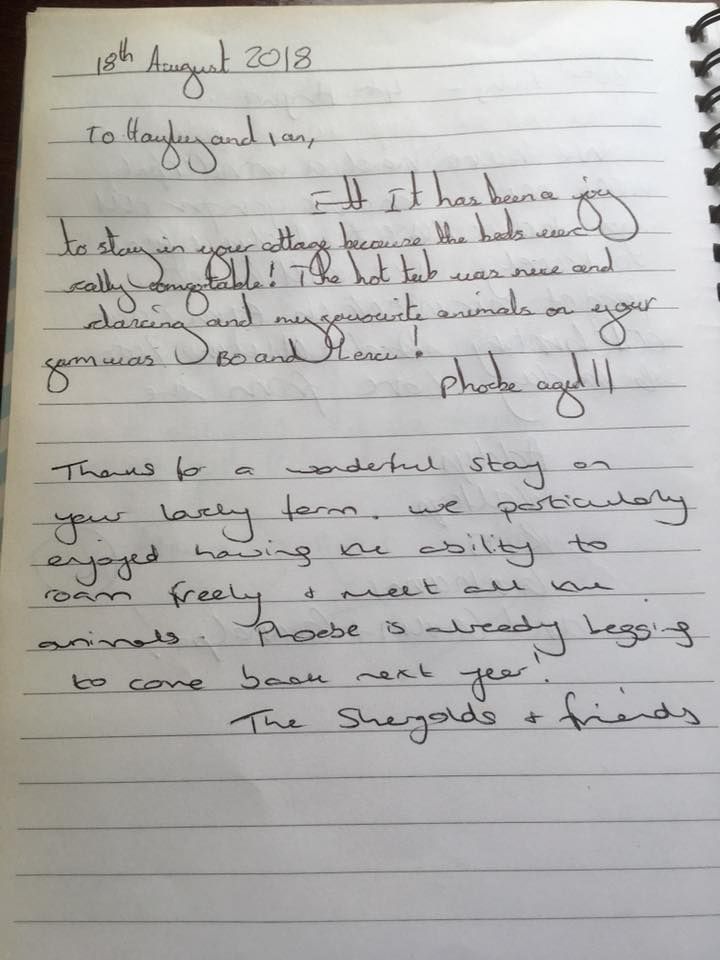 18th Auugust 2018
To Hayley and Ian,
It has been a joy
to stay in your cottage because the beds were
really comfortable! The hot tub was nice and
and my favourite animals on your
was BO and !
Phoebe aged 11
Thanks for a wonderful stay on
your lovely farm. we particularly
enjoyed having the ability to
roam freely + meet all the
animals. Phoebe is already begging
to come back next year!
The Shergolds + friends